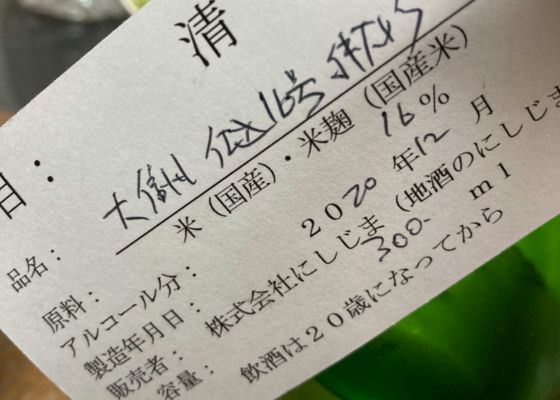 清
目：
品名：大信州 仕込16号 槽場詰め
原料：米（国産）・米麹（国産米）
アルコール分：16％
製造年月日：2020年12月
販売者：株式会社にしじま（地酒のにしじま
容量：300 ml
飲酒は20歳になってから